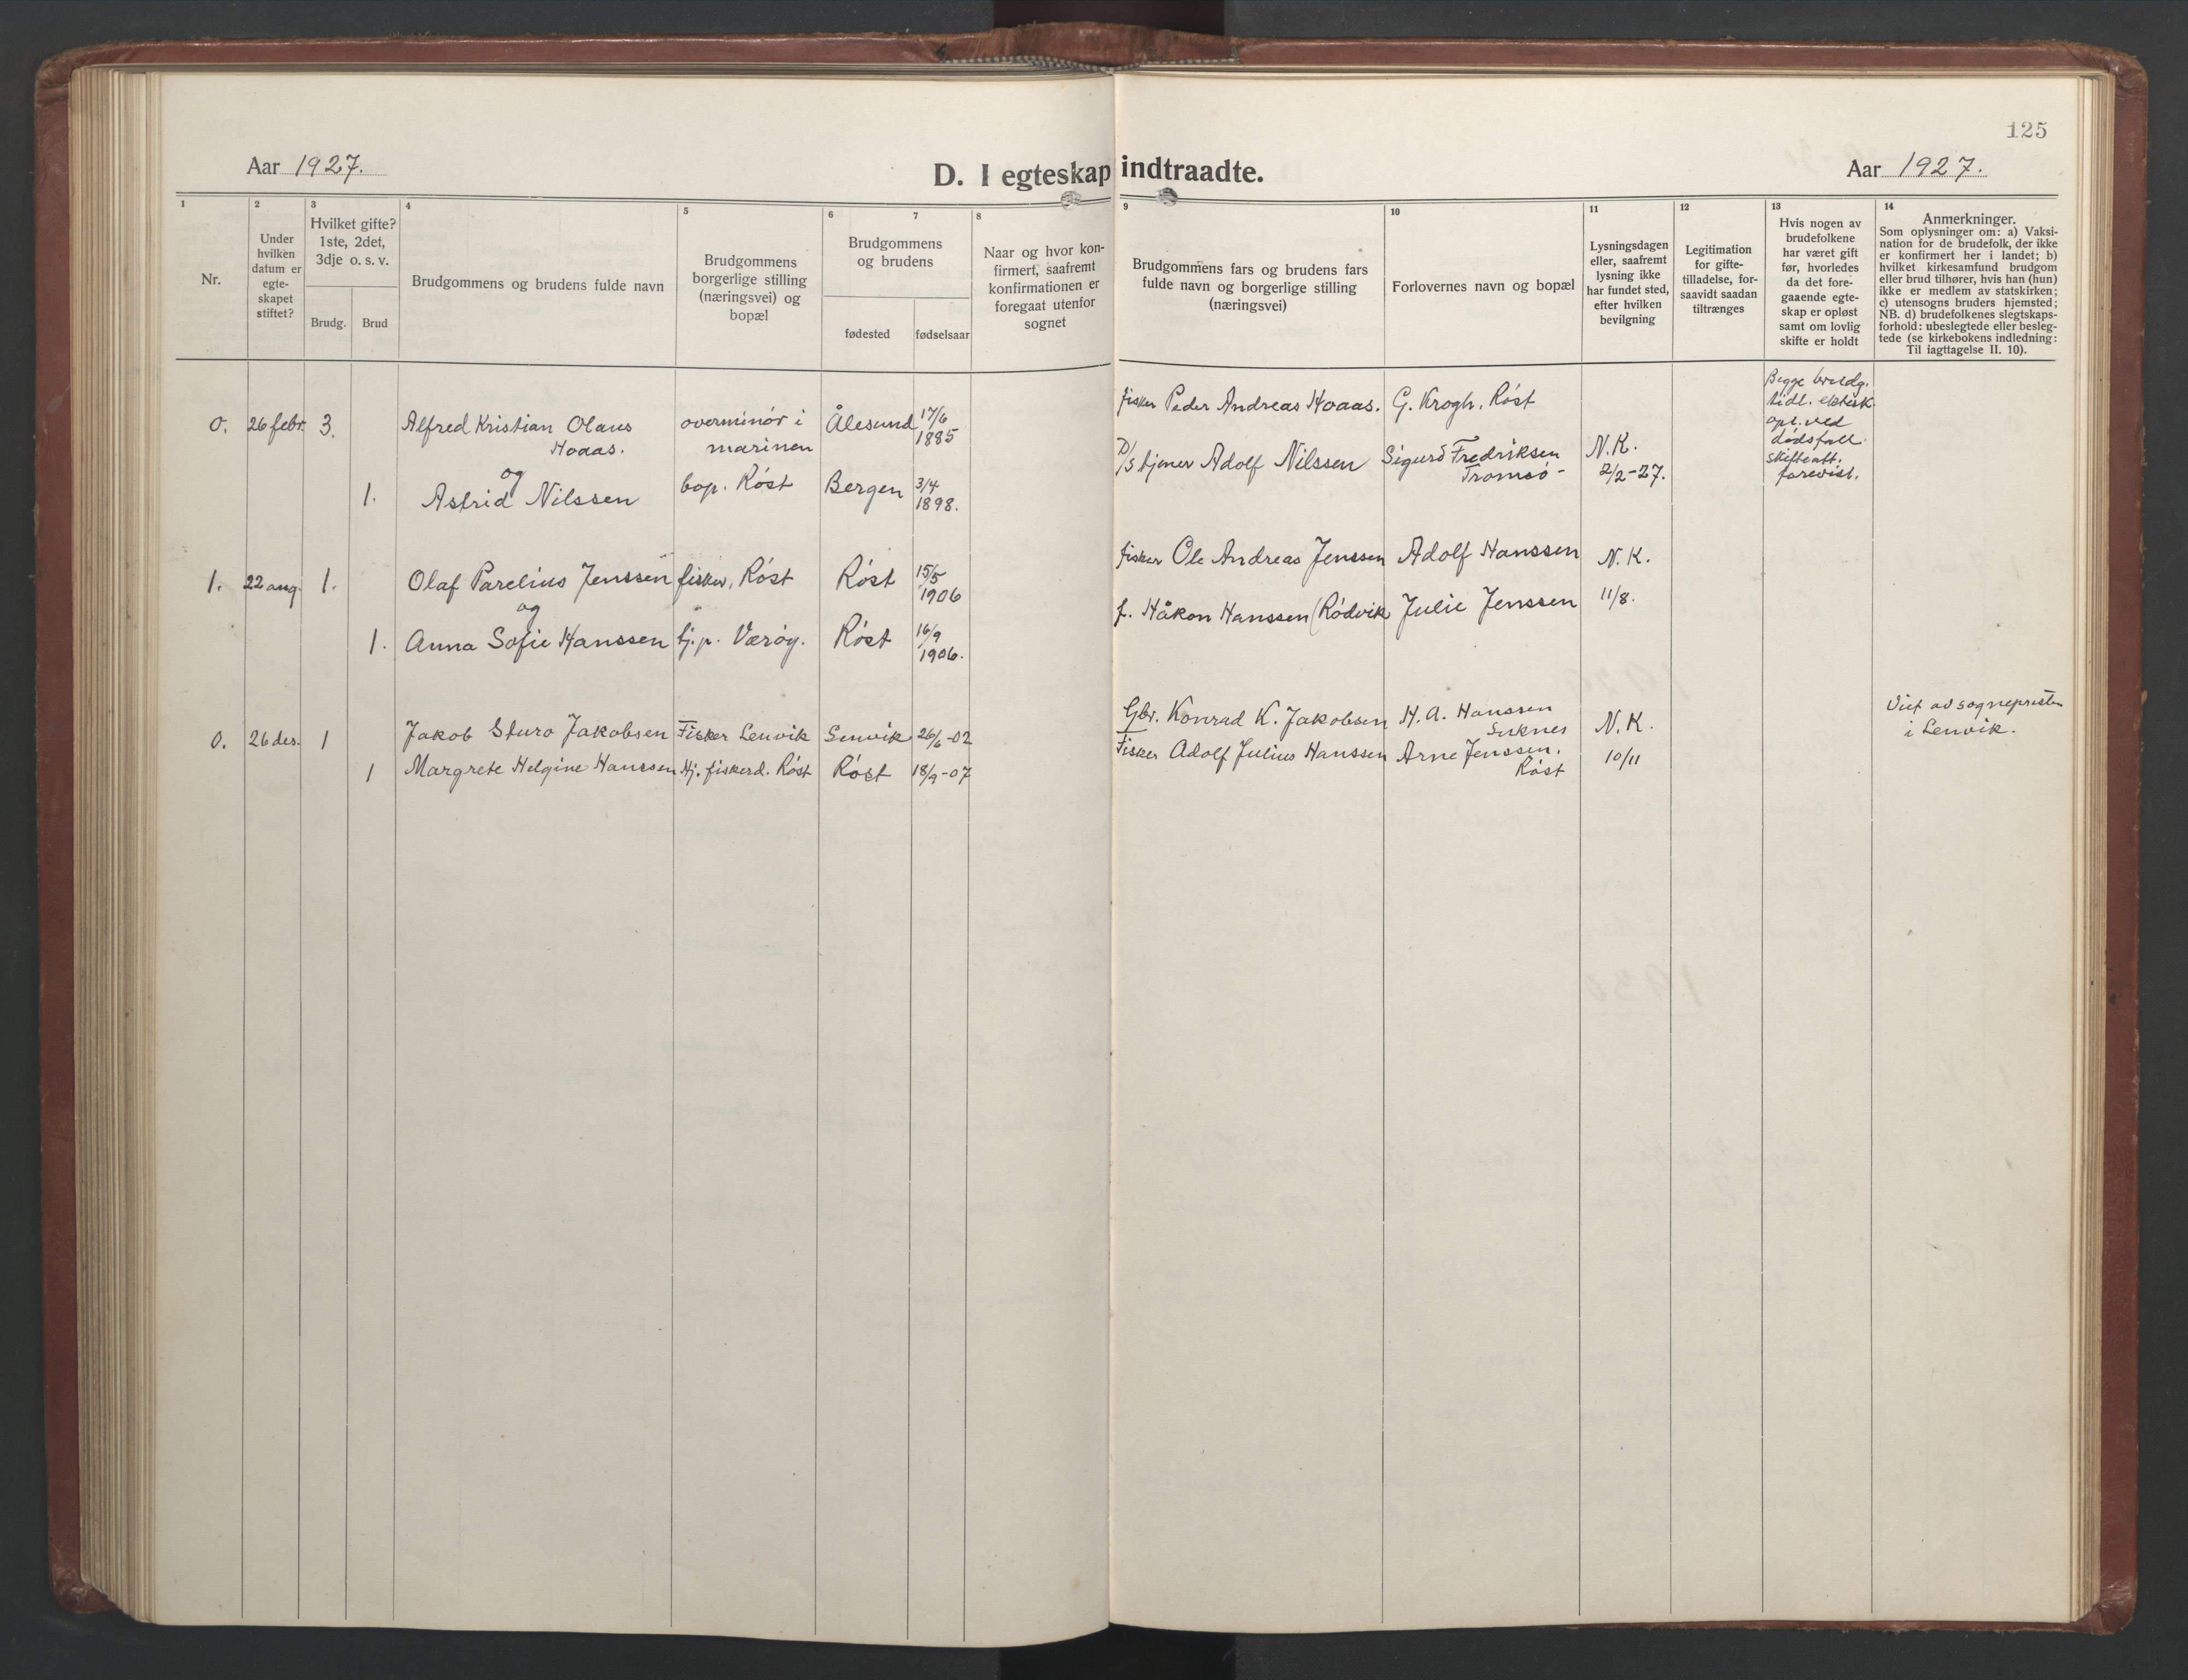 125
Aar 1927.
D. I egteskap indtraadte.
Aar 1927.
1
2
3
4
5
6
7
8
9
10
11
12
13
14
Nr.
Under
hvilken
datum er
egte-
skapet
stiftet?
Hvilket gifte?
1ste, 2det,
3dje o. s. v.
Brudg.
Brud
Brudgommens og brudens fulde navn
Brudgommens
borgerlige stilling
(næringsvei) og
bopæl
Brudgommens
og brudens
fødested
fødselsaar
Naar og hvor kon-
firmert, saafremt
konfirmationen er
foregaat utenfor
sognet
Brudgommens fars og brudens fars
fulde navn og borgerlige stilling
(næringsvei)
Forlovernes navn og bopæl
Lysningsdagen
eller, saafremt
lysning ikke
har fundet sted,
efter hvilken
bevilgning
Legitimation
for gifte-
tilladelse, for-
saavidt saadan
tiltrænges
Hvis nogen av
brudefolkene
har været gift
før, hvorledes
da det fore-
gaaende egte-
skap er opløst
samt om lovlig
skifte er holdt
Anmerkninger.
Som oplysninger om: a) Vaksi-
nation for de brudefolk, der ikke
er konfirmert her i landet; b)
hvilket kirkesamfund brudgom
eller brud tilhører, hvis han (hun)
ikke er medlem av statskirken;
c) utensogns bruders hjemsted;
NB. d) brudefolkenes slegtskaps-
forhold: ubeslegtede eller besleg-
tede (se kirkebokens indledning:
Til iagttagelse II. 10).
0. 26 febr. 3. Alfred Kristian Olaus
Hoaas.
overminör i
marinen
Ålesund 17/6
1885
fisker Peder Andreas Hoaas. G. Krogh, Röst
Begge brudg.
tidl. ektesk.
opl. ved
dödsfall.
skifteatt.
forevist.
og
1. Astrid Nilssen bop. Röst Bergen 3/4
1898.
D/s tjener Adolf Nilssen Sigurd Fredriksen
Tromsö-
N.K.
2/2-27.
1. 22 aug. 1. Olaf Parelius Jenssen fisker, Röst Röst 15/5
1906
fisker Ole Andreas Jenssen Adolf Hanssen N.K.
og
1. Anna Sofie Hanssen tj.p. Væröy. Röst 16/9
1906.
f. Håkon Hanssen (Rödvik Julie Jenssen 11/8.
0. 26 des. 1 Jakob Sturo Jakobsen Fisker Lenvik Senvik 26/6-02
Gbr. Konrad K. Jakobsen H. A. Hanssen
N.K.
Viet av sognepresten
i Lenvik.
1 Margrete Helgine Hanssen Hj. fiskerd. Röst Röst 18/9-07
Fisker Adolf Julius Hanssen Arne Jenssen.
Röst
10/11